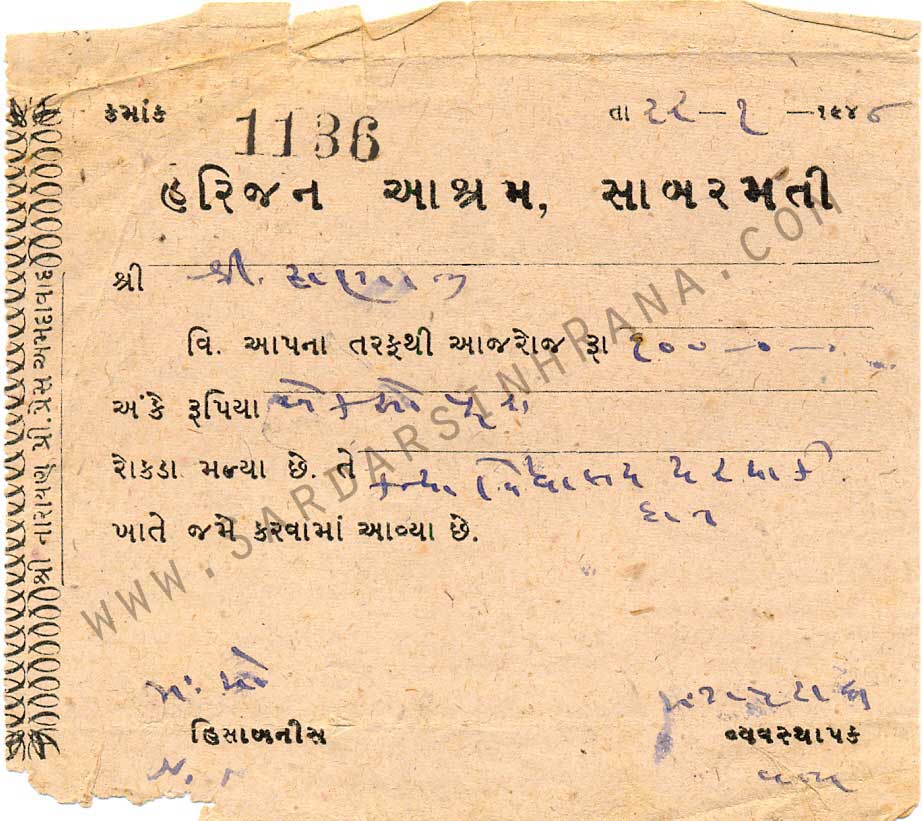 ક્રમાંક 1136 તા ૨૨-૧-૧૯૪૮
હરિજન આશ્રમ, સાબરમતી
શ્રી શ્રી.
વિ. આપના તરફથી આજરોજ રૂા ૧૦૦-૦-૦
અંકે રૂપિયા એકસો પૂરા
રોકડા મળ્યા છે. તે કન્યા વિદ્યાલય
ખાતે જમે કરવામાં આવ્યા છે.
હિસાબનીસ વ્યવસ્થાપક
શ્રી નારાયણ પ્રિ. પ્રેસ અમદાવાદ
WWW.SARDARSINHRANA.COM